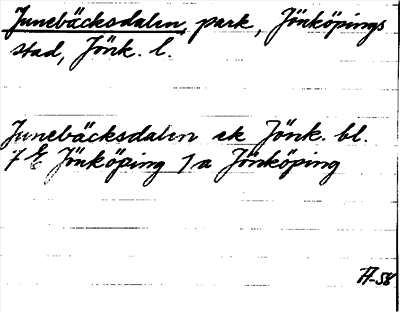 Junebäcksdalen, park, Jönköpings
stad, Jönk. l.
Junebäcksdalen ek Jönk. bl.
7 E Jönköping 7 a Jönköping
A-58